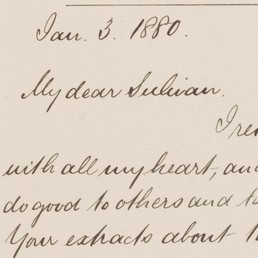 Jan. 3. 1880.
My dear Sulivan.
I
with all my heart, and
do good to others and
Your extracts about